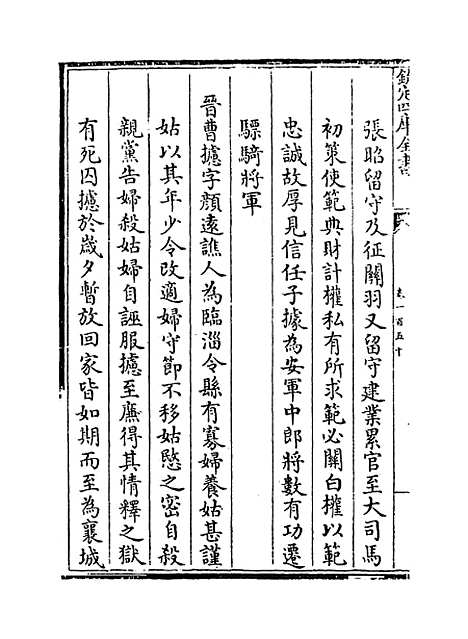 欽定四庫全書
卷一百五十
張昭留守及征關羽又留守建業累官至大司馬
初策使範典財計權私有所求範必關白權以範
忠誠故厚見信任子據為安軍中郎將數有功遷
驃騎將軍
晉曹攄字顏遠譙人為臨淄令縣有寡婦養姑甚謹
姑以其年少令改適婦守節不移姑愍之密自殺
親黨告婦殺姑婦自誣服攄至廉得其情釋之獄
有死囚攄於歲夕暫放回家皆如期而至為襄城